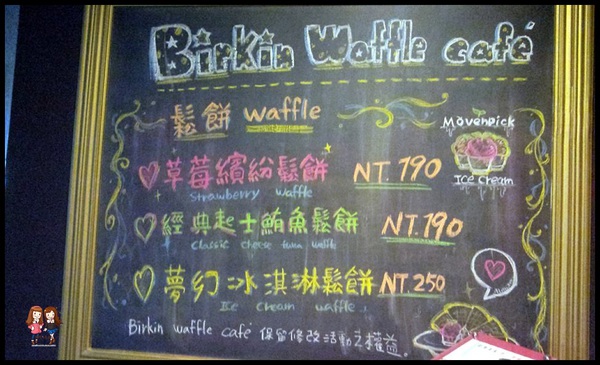 Birkin Waffle café
鬆餅 waffle
Mövenpick
Ice cream
草莓繽紛鬆餅 NT.190
Strawberry waffle
經典起士鮪魚鬆餅 NT.190
Classic cheese tuna waffle
夢幻冰淇淋鬆餅 NT.250
Ice cream waffle
Birkin waffle café 保留修改活動之權益